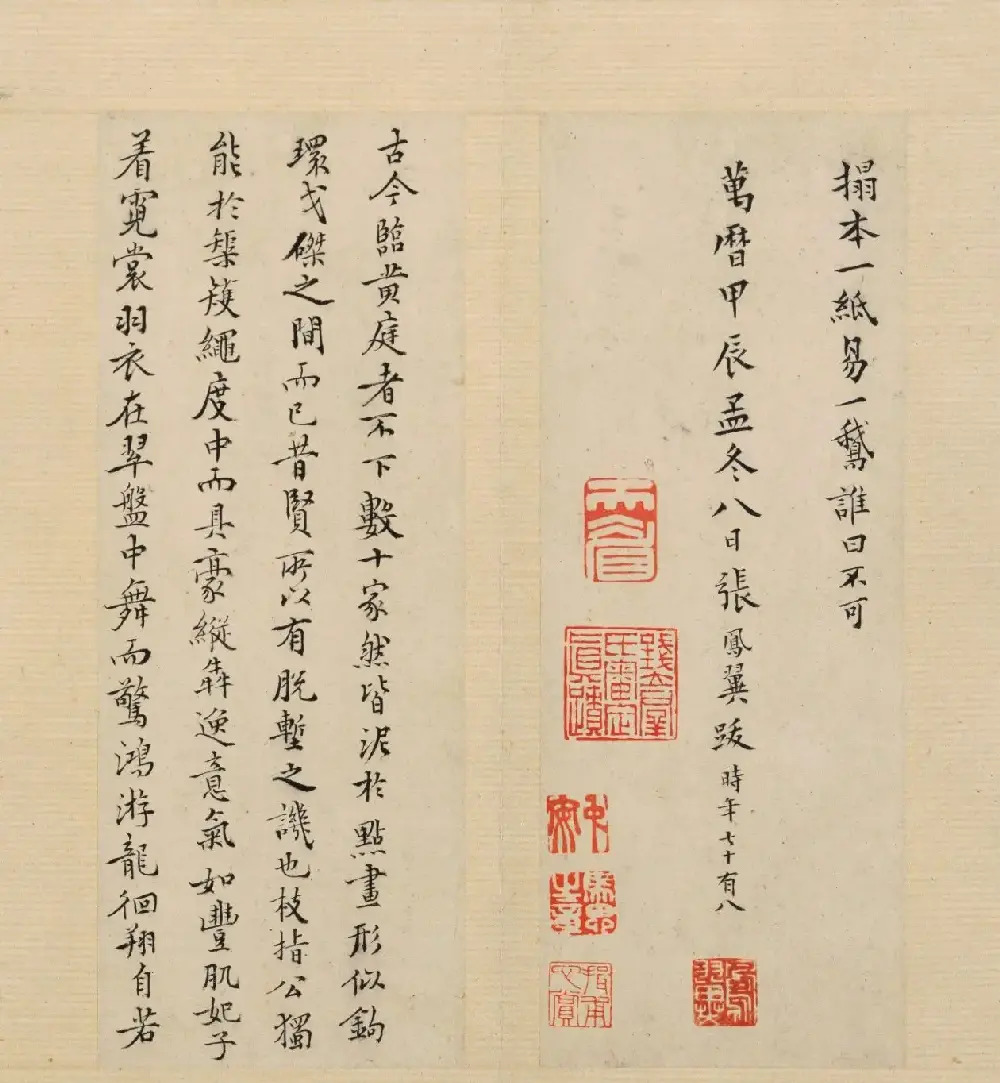 搨本一紙易一鵝誰曰不可
萬曆甲辰孟冬八日張鳳翼跋時年七十有八
古今臨黃庭者不下數十家然皆泥於點畫形似鉤
環戈磔之間而已昔賢所以有脫塹之譏也枝指公獨
能於榘矱繩度中而具豪縱犇逸意氣如豐肌妃子
着霓裳羽衣在翠盤中舞而驚鴻游龍徊翔自若